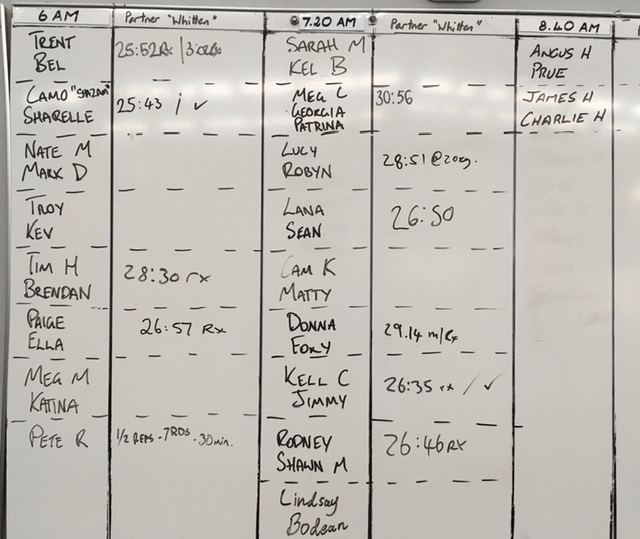 6 AM
Partner "Whitten"
TRENT
BEL
25:52Rx /
CAMO "SHAZAM"
SHARELLE
25:43 / ✓
NATE M
MARK D
TROY
KEV
TIM H
BRENDAN
28:30 rx
PAIGE
ELLA
26:57 Rx
MEG M
KATINA
PETE R
1/2 REPS - 7RDS - 30min.
7.20 AM
Partner "Whitten"
SARAH M
KEL B
MEG C
GEORGIA
PATRINA
30:56
LUCY
ROBYN
28:51 @20kg.
LANA
SEAN
26:50
CAM K
MATTY
DONNA
FOXY
29.14 m/Rx
KELL C
JIMMY
26:35 rx / ✓
RODNEY
SHAWN M
26:46 RX
Lindsay
Bodean
8.40 AM
ANGUS H
PRUE
JAMES H
CHARLIE H